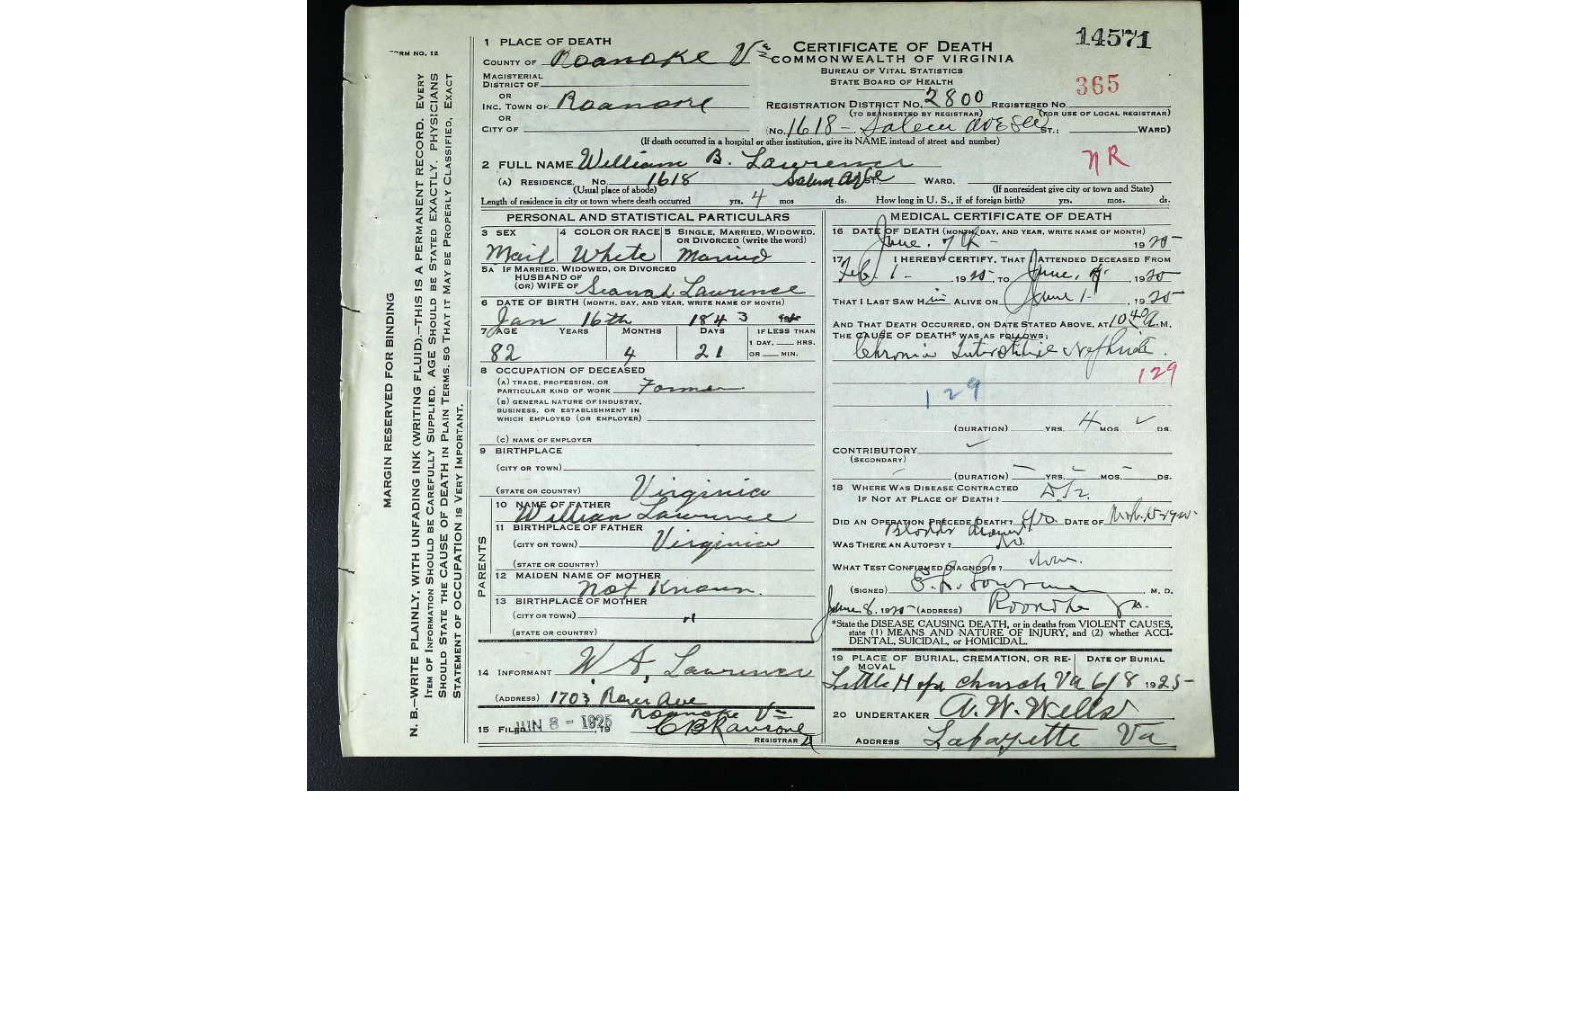 FORM NO. 12
MARGIN RESERVED FOR BINDING
N. B.—WRITE PLAINLY, WITH UNFADING INK (WRITING FLUID).—THIS IS A PERMANENT RECORD. EVERY
ITEM OF INFORMATION SHOULD BE CAREFULLY SUPPLIED. AGE SHOULD BE STATED EXACTLY. PHYSICIANS
SHOULD STATE THE CAUSE OF DEATH IN PLAIN TERMS, SO THAT IT MAY BE PROPERLY CLASSIFIED. EXACT
STATEMENT OF OCCUPATION IS VERY IMPORTANT.
1 PLACE OF DEATH
COUNTY OF Roanoke Va
MAGISTERIAL
DISTRICT OF
OR
INC. TOWN OF Roanoke
OR
CITY OF
CERTIFICATE OF DEATH
COMMONWEALTH OF VIRGINIA
BUREAU OF VITAL STATISTICS
STATE BOARD OF HEALTH
14571
365
REGISTRATION DISTRICT NO. 2800 REGISTERED NO.
(TO BE INSERTED BY REGISTRAR) (FOR USE OF LOCAL REGISTRAR)
(No. 1618 - Salem Ave ST.; WARD)
(If death occurred in a hospital or other institution, give its NAME instead of street and number)
2 FULL NAME William B. Lawrence
NR
(A) RESIDENCE. No. 1618 Salem Ave ST. WARD.
(Usual place of abode) (If nonresident give city or town and State)
Length of residence in city or town where death occurred yrs. 4 mos ds. How long in U. S., if of foreign birth? yrs. mos. ds.
PERSONAL AND STATISTICAL PARTICULARS
3 SEX 4 COLOR OR RACE 5 SINGLE, MARRIED, WIDOWED,
OR DIVORCED (write the word)
Mail White Married
5A IF MARRIED, WIDOWED, OR DIVORCED
HUSBAND OF
(OR) WIFE OF Lawrence
6 DATE OF BIRTH (MONTH, DAY, AND YEAR, WRITE NAME OF MONTH)
Jan 16th 1843
7 AGE YEARS MONTHS DAYS IF LESS THAN
1 DAY, HRS.
OR MIN.
82 4 21
8 OCCUPATION OF DECEASED
(A) TRADE, PROFESSION, OR
PARTICULAR KIND OF WORK Farmer
(B) GENERAL NATURE OF INDUSTRY,
BUSINESS, OR ESTABLISHMENT IN
WHICH EMPLOYED (OR EMPLOYER)
(C) NAME OF EMPLOYER
9 BIRTHPLACE
(CITY OR TOWN)
(STATE OR COUNTRY) Virginia
PARENTS
10 NAME OF FATHER
William Lawrence
11 BIRTHPLACE OF FATHER
(CITY OR TOWN) Virginia
(STATE OR COUNTRY)
12 MAIDEN NAME OF MOTHER
Not Known.
13 BIRTHPLACE OF MOTHER
(CITY OR TOWN) "
(STATE OR COUNTRY)
14 INFORMANT W. A. Lawrence
(ADDRESS) 1703 Rorer Ave
Roanoke Va
15 FILED JUN 8 - 1925 19 C B Ransone
REGISTRAR
MEDICAL CERTIFICATE OF DEATH
16 DATE OF DEATH (MONTH, DAY, AND YEAR, WRITE NAME OF MONTH)
June. 7th - 1925
17 I HEREBY CERTIFY, THAT I ATTENDED DECEASED FROM
Feb 1 - 1925, TO June, 1925
THAT I LAST SAW Him ALIVE ON June 1- , 1925
AND THAT DEATH OCCURRED, ON DATE STATED ABOVE, AT 10 40 A. M.
THE CAUSE OF DEATH* WAS AS FOLLOWS:
Chronic Interstitial Nephritis.
129
129
(DURATION) YRS. 4 MOS. DS.
CONTRIBUTORY
(SECONDARY)
(DURATION) YRS. MOS. DS.
18 WHERE WAS DISEASE CONTRACTED
IF NOT AT PLACE OF DEATH?
DID AN OPERATION PRECEDE DEATH? DATE OF
WAS THERE AN AUTOPSY? No.
WHAT TEST CONFIRMED DIAGNOSIS?
(SIGNED) M. D.
June 8. 1925 (ADDRESS) Roanoke Va.
*State the DISEASE CAUSING DEATH, or in deaths from VIOLENT CAUSES,
state (1) MEANS AND NATURE OF INJURY, and (2) whether ACCI-
DENTAL, SUICIDAL, or HOMICIDAL.
19 PLACE OF BURIAL, CREMATION, OR RE- DATE OF BURIAL
MOVAL
Little Hope church Va 6/8 1925-
20 UNDERTAKER A. W. Wells
ADDRESS Lafayette Va